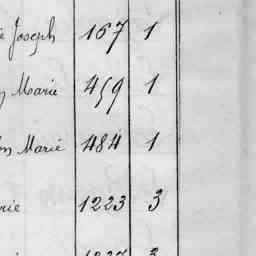 Joseph 167 1
Marie 459 1
Marie 484 1
1223 3